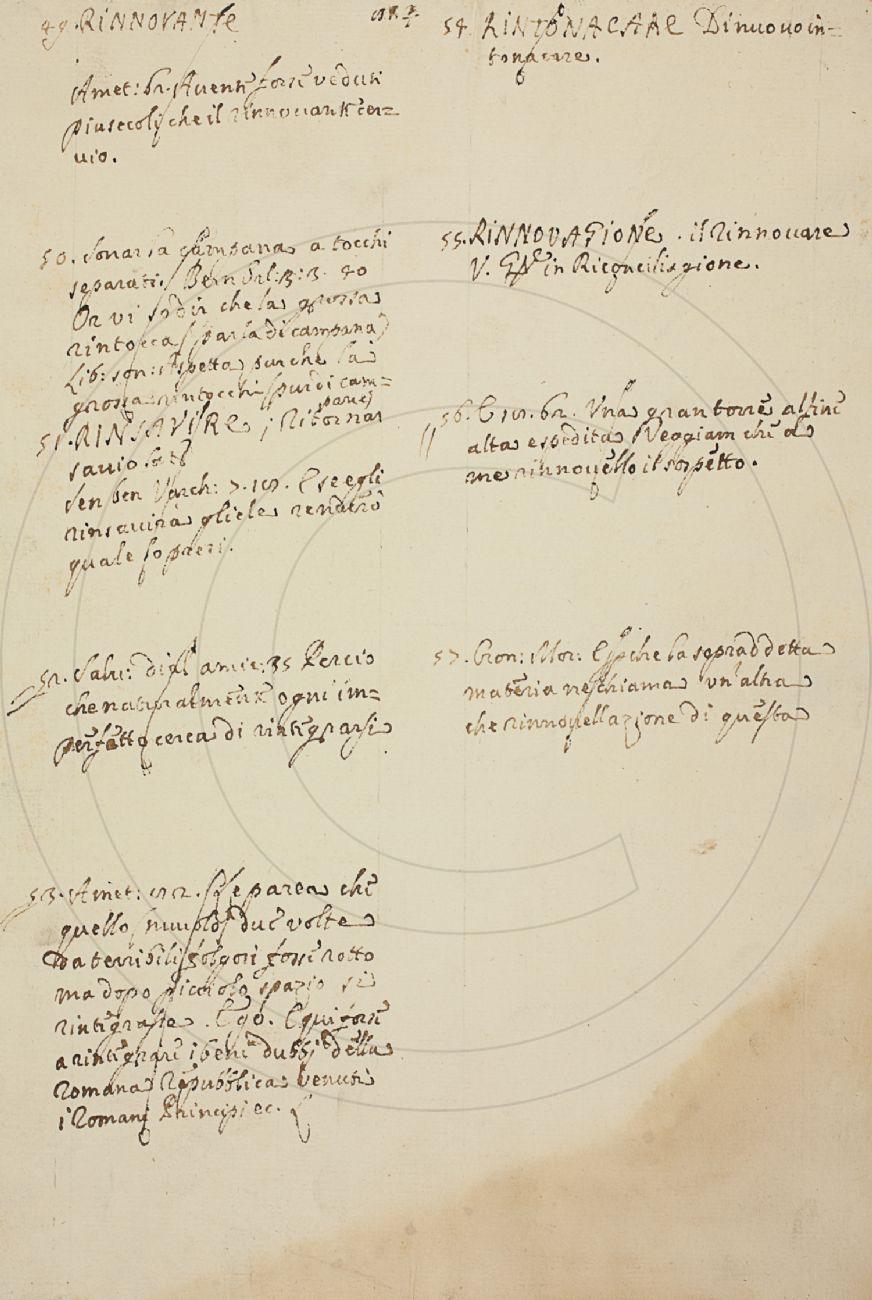 49. RINNOVANTE
Amet: 61. Avente forse veduti
piu secoli che il rinnovante cer=
uio.
50. Sonar la campana a tocchi
separati. Bern Orl: 3: 3. 40
Or vi sò dir che la grossa
rintocca (parla di campana)
Lib: son: Aspetta pur che la
grossa rintocchi (pur di cam=
pane)
51. RINSAVIRE; Ritornar
savio
Sen ben Varch: 7. E se egli
rinsavirà gliele renderò
quale lo presi.
52. Salv: amic: 35 Percio
che naturalmente ogni im=
perfetto cerca di rintegrarsi
53. Amet: E parea che
quello nuuolo due volte
da terribili folgori fosse rotto
ma dopo picciolo spazio si
rintegrasse. E qui forse
a rintegrare i beni dubbj della
Romana Repubblica venuti
i Romani Principi ec.
54. RINTONACARE Di nuouo in=
tonacare.
55. RINNOVAGIONE. il Rinnouare
V. in Riconciliagione.
56. Una gran torre allinc
alta espedita Veggiam che a
me rinnouello il sospetto.
57. Cron: Mor: che la sopraddetta
materia ne chiama un'altra
che rinnouellazione di questa